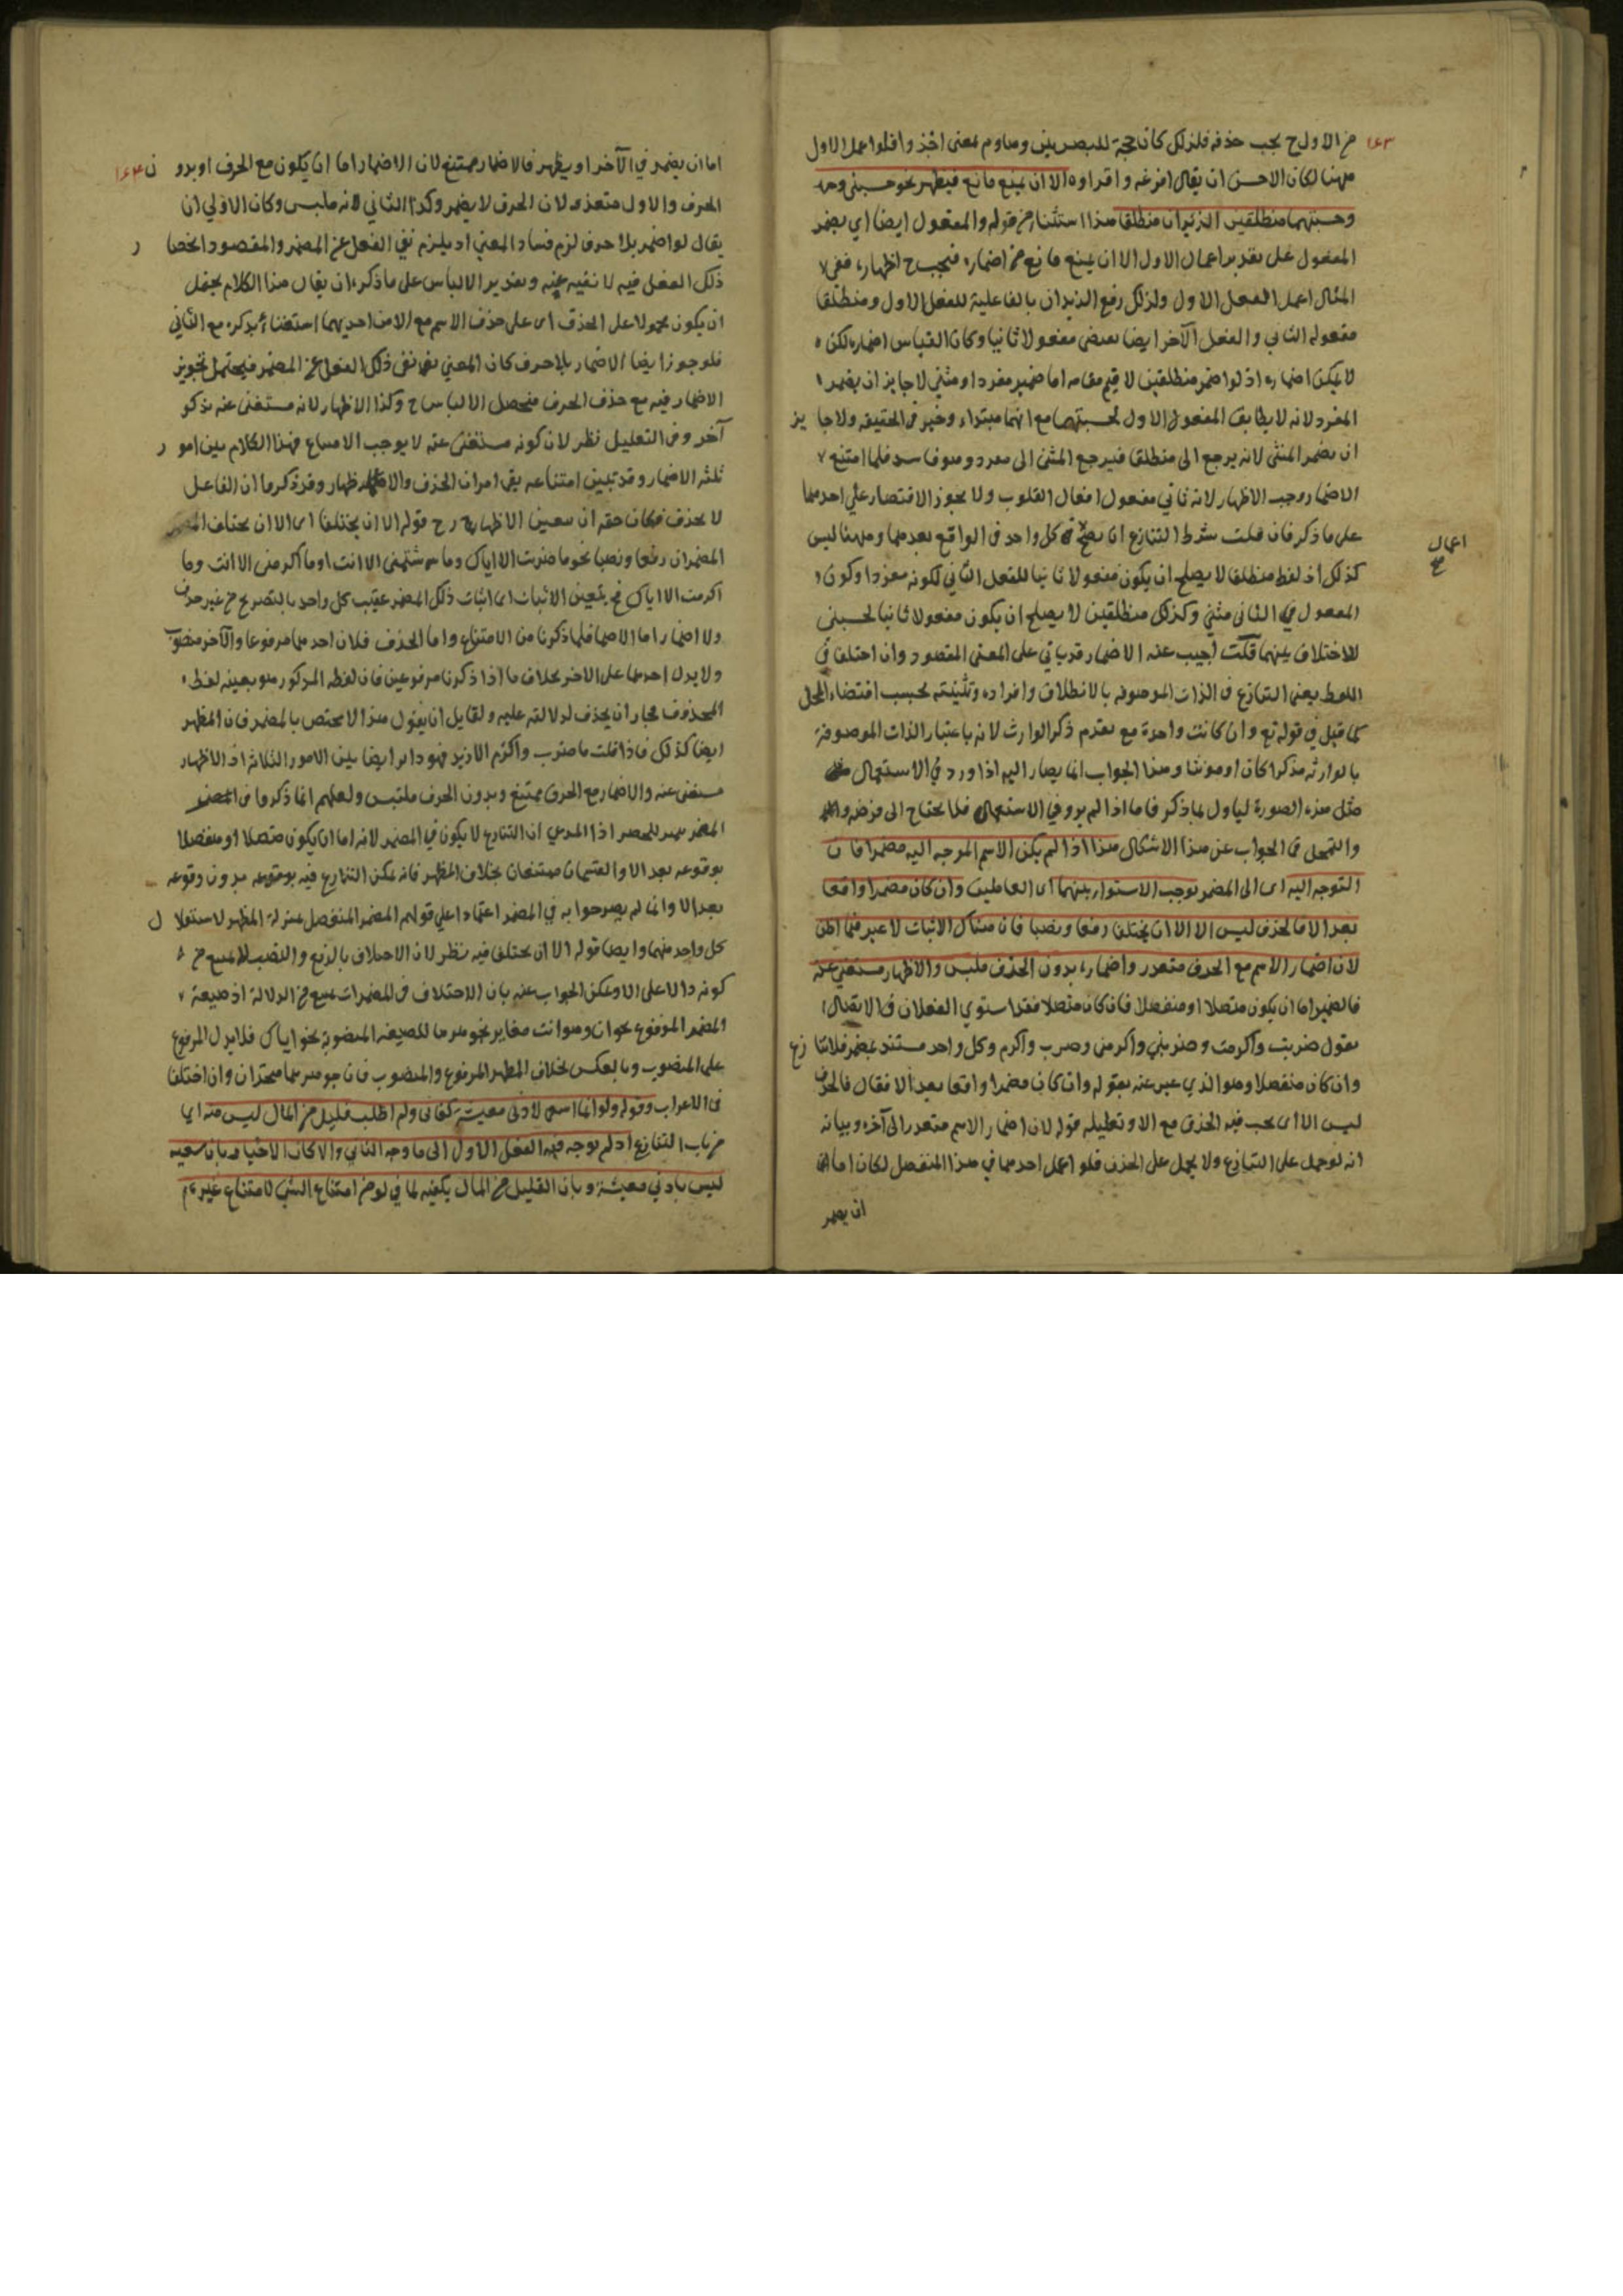 ١٤٣
من الاول ح يجب حذفه فلذلك كان حجة للبصريين وهاوم بمعنى اخذ وا فلو اعمل الاول
ههنا لكان الاحسن ان يقال افرغه واقراوه الا ان يمنع مانع فيظهر نحو حسبني وحـ
وحسبتهما منطلقين الزيدان منطلقا هذا استثناء من قوله والمفعول ايضا اي يضمر
المفعول على تقدير اعمال الاول الا ان يمنع مانع من اضماره فيجب ح اظهاره ففى
المثال اعمل الفعل الاول ولذلك رفع الزيدان بالفاعلية للفعل الاول ومنطلقا
مفعوله الثاني والفعل الآخر ايضا يقتضى مفعولا ثانيا وكان القياس اضماره لكن
لا يمكن اضماره اذ لو اضمر منطلقين لاقيم مقامه اما ضمير مفرد او مثنى لا جايز ان يضمر
المفرد لانه لا يطابق المفعول الاول لحسبتهما مع انهما مبتداء وخبر فى الحقيقه ولا جا يز
ان يضمر المثنى لانه يرجع الى منطلقا فيرجع المثنى الى مفرد وهو فاسد فلما امتنع
الاضمار وجب الاظهار لانه ثاني مفعول افعال القلوب ولا يجوز الاقتصار على احدهما
على ما ذكر فان قلت شرط التنازع ان يصح كل واحد فى الواقع بعدهما وههنا ليس
اعمال
صح
كذلك اذ لفظ منطلقا لا يصلح ان يكون مفعولا ثانيا للفعل الثاني لكونه مفردا وكون
المفعول في الثانى مثنى وكذلك منطلقين لا يصلح ان يكون مفعولا ثانيا لحسبنى
للاختلاف بينهما قلت اجيب عنه الاضمار قد ياتي على المعنى المقصود وان اختلفا في
اللفظ يعنى التنازع فى الذات الموصوفه بالانطلاق وافراده وتثنيته بحسب اقتضاء المحل
كما قيل في قوله تع وان كانت واحدة مع تقدم ذكر الوارث لانه باعتبار الذات الموصوفة
بالوارثه مذكرا كان او مونثا وهذا الجواب انما يصار اليه اذا ورد في الاستعمال
مثل هذه الصورة ليأول بما ذكر فاما اذا لم يرو في الاستعمال فلا يحتاج الى فرضه
والتمحل فى الجواب عن هذا الاشكال هذا اذا لم يكن الاسم الموجه اليه مضمرا فان
التوجه اليه اى الى المضمر يوجب الاستواء بينهما اى العاملين وان كان مضمرا واقعا
بعد الا فالحذف ليس الا الا ان يختلفا رفعا ونصبا فان هناك الاثبات لا غير فيما اظن
لان اضمار الاسم مع الحرف متعذر واضماره بدون الحذف ملبس والاظهار مستغني عنه
فالضمير اما ان يكون متصلا او منفصلا فان كان متصلا فقد استوي الفعلان في الاتصال
تقول ضربت واكرمت وضربني واكرمنى وضرب واكرم وكل واحد مستند بضمير فلا تنا زع
وان كان منفصلا وهو الذي عبر عنه بقوله وان كان مضمرا واقعا بعد الا فقال فالحذف
ليس الا اى يجب فيه الحذف مع الا وتعليله قوله لان اضمار الاسم متعذر الى آخره وبيانه
انه لو حمل على التنازع ولا يحمل على الحذف فلو اعمل احدهما في هذا المنفصل لكان اما
ان يضمر
١٤٤
اما ان يضمر في الآخر او يظهر فالاضمار ممتنع لان الاضمار اما ان يكون مع الحرف او بدو ن
الحرف والاول متعذر لان الحرف لا يضمر وكذا الثاني لانه ملبس وكان الاولي ان
يقال لو اضمر بلا حرف لزم فساد المعنى اذ يلزم نفى الفعل عن المضمر والمقصود انحصا ر
ذلك الفعل فيه لا نفيه عنه وتقدير الالباس على ما ذكره ان يقال هذا الكلام يحتمل
ان يكون محمولا على الحذف اى على حذف الاسم مع الا من احديهما استغناء بذكره مع الثاني
فلو جوز ايضا الاضمار بلا حرف كان المعني نفى ذلك الفعل عن المضمر فيحتمل تجويز
الاضمار فيه مع حذف الحرف فيحصل الالباس ح وكذا الاظهار لانه مستغنى عنه مذكو ر
آخر وفى التعليل نظر لان كونه مستغنى عنه لا يوجب الامتناع فهذا الكلام بين امو ر
ثلثه الاضمار وقد تبين امتناعه بقى امران الحذف والاظهار وقد ذكرما ان الفاعل
لا يحذف فكان حقه ان يتعين الاظهار ح قوله الا ان يختلفا اى الا ان يختلف
المضمران رفعا ونصبا نحو ما ضربت الا اياك وما شتمنى الا انت او ما اكرمنى الا انت وما
اكرمت الا اياك فح يتعين الاثبات اى اثبات ذلك المضمر عقيب كل واحد بالتصريح من غير حذف
ولا اضمار اما الاضمار فلما ذكرنا من الامتناع واما الحذف فلان احدهما مرفوعا والآخر منصوب
ولا يدل احدهما على الاخر بخلاف ما اذا ذكرنا مرفوعين فان لفظه المذكور هو بعينه لفظ
المحذوف فجاز ان يحذف لدلالته عليه ولقايل ان يقول هذا لا يختص بالمضمر فان المظهر
ايضا كذلك فاذا قلت ما ضرب واكرم الا زيد فهو داير ايضا بين الامور الثلاثه اذ الاظهار
مستغنى عنه والاضمار مع الحرف ممتنع وبدون الحرف ملتبس ولعلهم انما ذكروا فى المضمر
بوقوعه بعد الا والقسمان ممتنعان بخلاف المظهر فانه يمكن التنازع فيه بوقوعه بدون وقوعه
بعد الا وانما لم يصرحوا به في المضمر اعتمادا على قولهم المضمر المنفصل بمنزلة المظهر لاستقلا ل
كل واحد منهما وايضا قوله الا ان يختلفا فيه نظر لان الاختلاف بالرفع والنصب لا يمنع من
كونه دالا على الا ويمكن الجواب عنه بان الاختلاف فى المضمرات يمنع من الدلالة اذ صيغة
المضمر المرفوع نحو ان وهو وانت مغاير للصيغه المنصوبة نحو اياك فلا يدل المرفوع
على المنصوب وبالعكس بخلاف المظهر المرفوع والمنصوب فان جوهرهما متحدان وان اختلفا
فى الاعراب وقوله ولو انما اسعى لادنى معيشة كفانى ولم اطلب قليل من المال ليس منه اى
من باب التنازع اذ لم يوجه فيه الفعل الاول الى ما وجه الثاني والا لكان الاخبار بان سعيه
ليس بادني معيشة وبان القليل من المال يكفيه لما في لو من امتناع الشئ لامتناع غيره